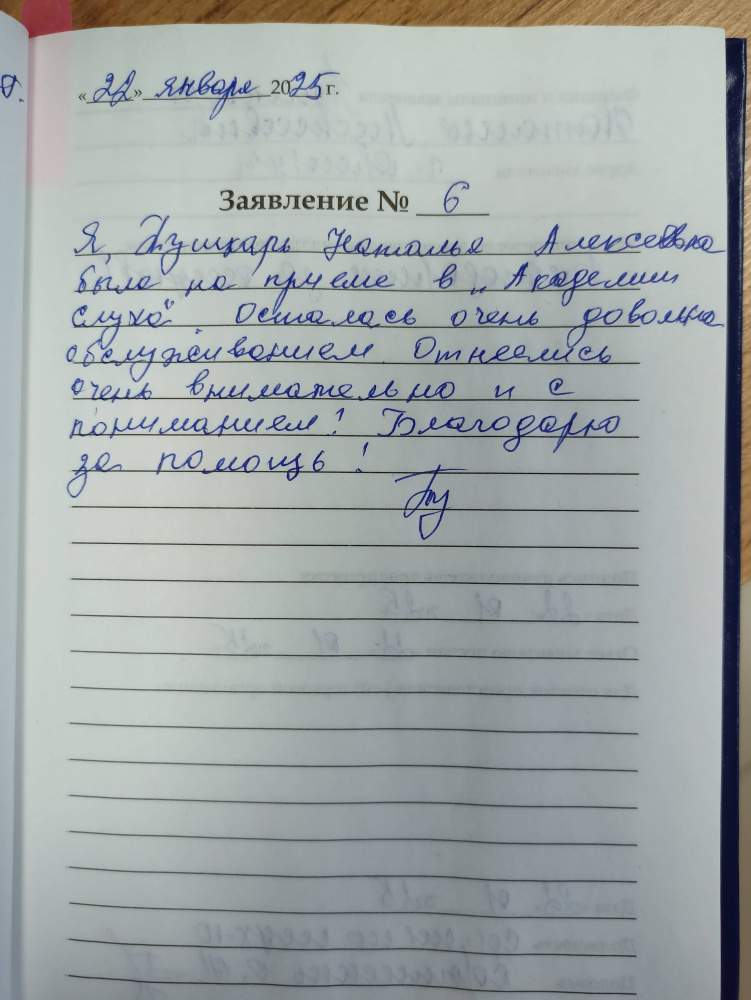 «22» января 2025 г.
Заявление № 6
Я, Пушкарь Наталья Алексеевна
была на приеме в „Академии
слуха". Осталась очень довольна
обслуживанием. Отнеслись
очень внимательно и с
пониманием! Благодарю
за помощь!